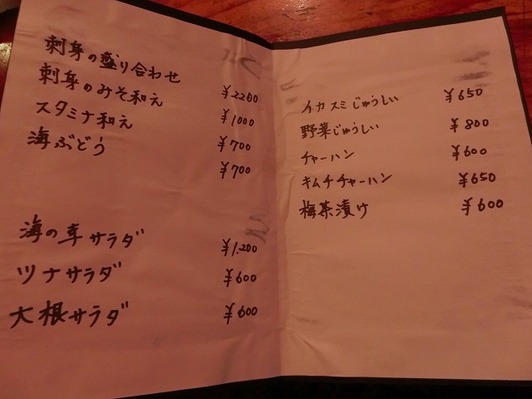 刺身の盛り合わせ ¥2200
刺身のみそ和え ¥1000
スタミナ和え ¥700
海ぶどう ¥700
海の幸サラダ ¥1,200
ツナサラダ ¥600
大根サラダ ¥600
イカスミじゅうしい ¥650
野菜じゅうしい ¥800
チャーハン ¥600
キムチチャーハン ¥650
梅茶漬け ¥600